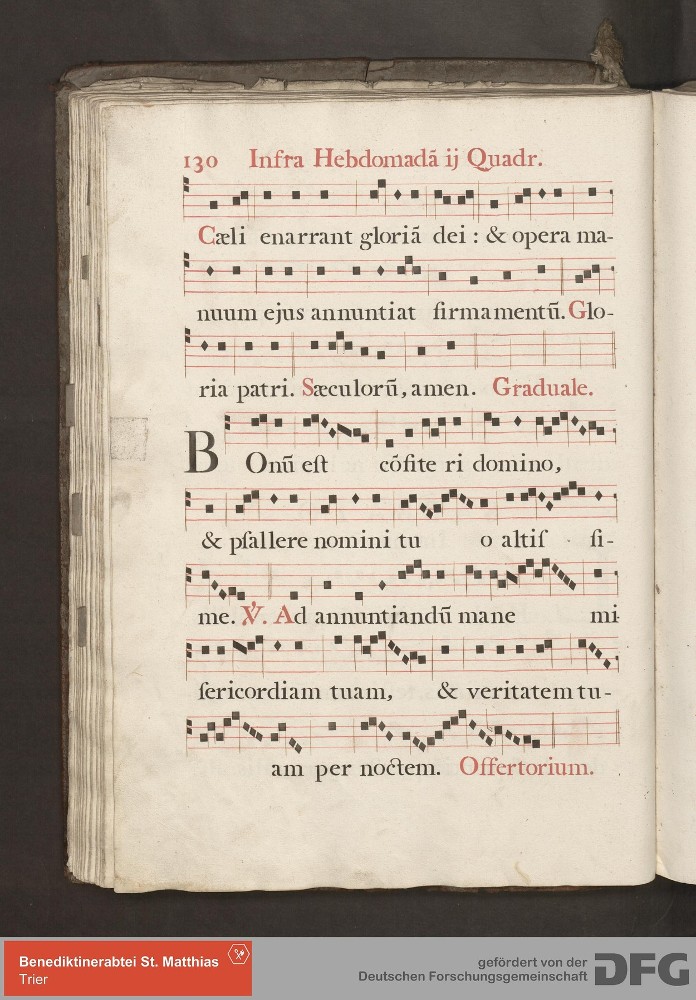 130 Infra Hebdomadã ij Quadr.
Cæli enarrant gloriã dei : & opera ma-
nuum ejus annuntiat firmamentũ. Glo-
ria patri. Sæculorũ, amen. Graduale.
BOnũ eſt cõfite ri domino,
& pſallere nomini tu o altiſ ſi-
me. ℣. Ad annuntiandũ mane mi-
ſericordiam tuam, & veritatem tu-
am per noctem. Offertorium.
Benediktinerabtei St. Matthias
Trier
gefördert von der
Deutschen Forschungsgemeinschaft
DFG